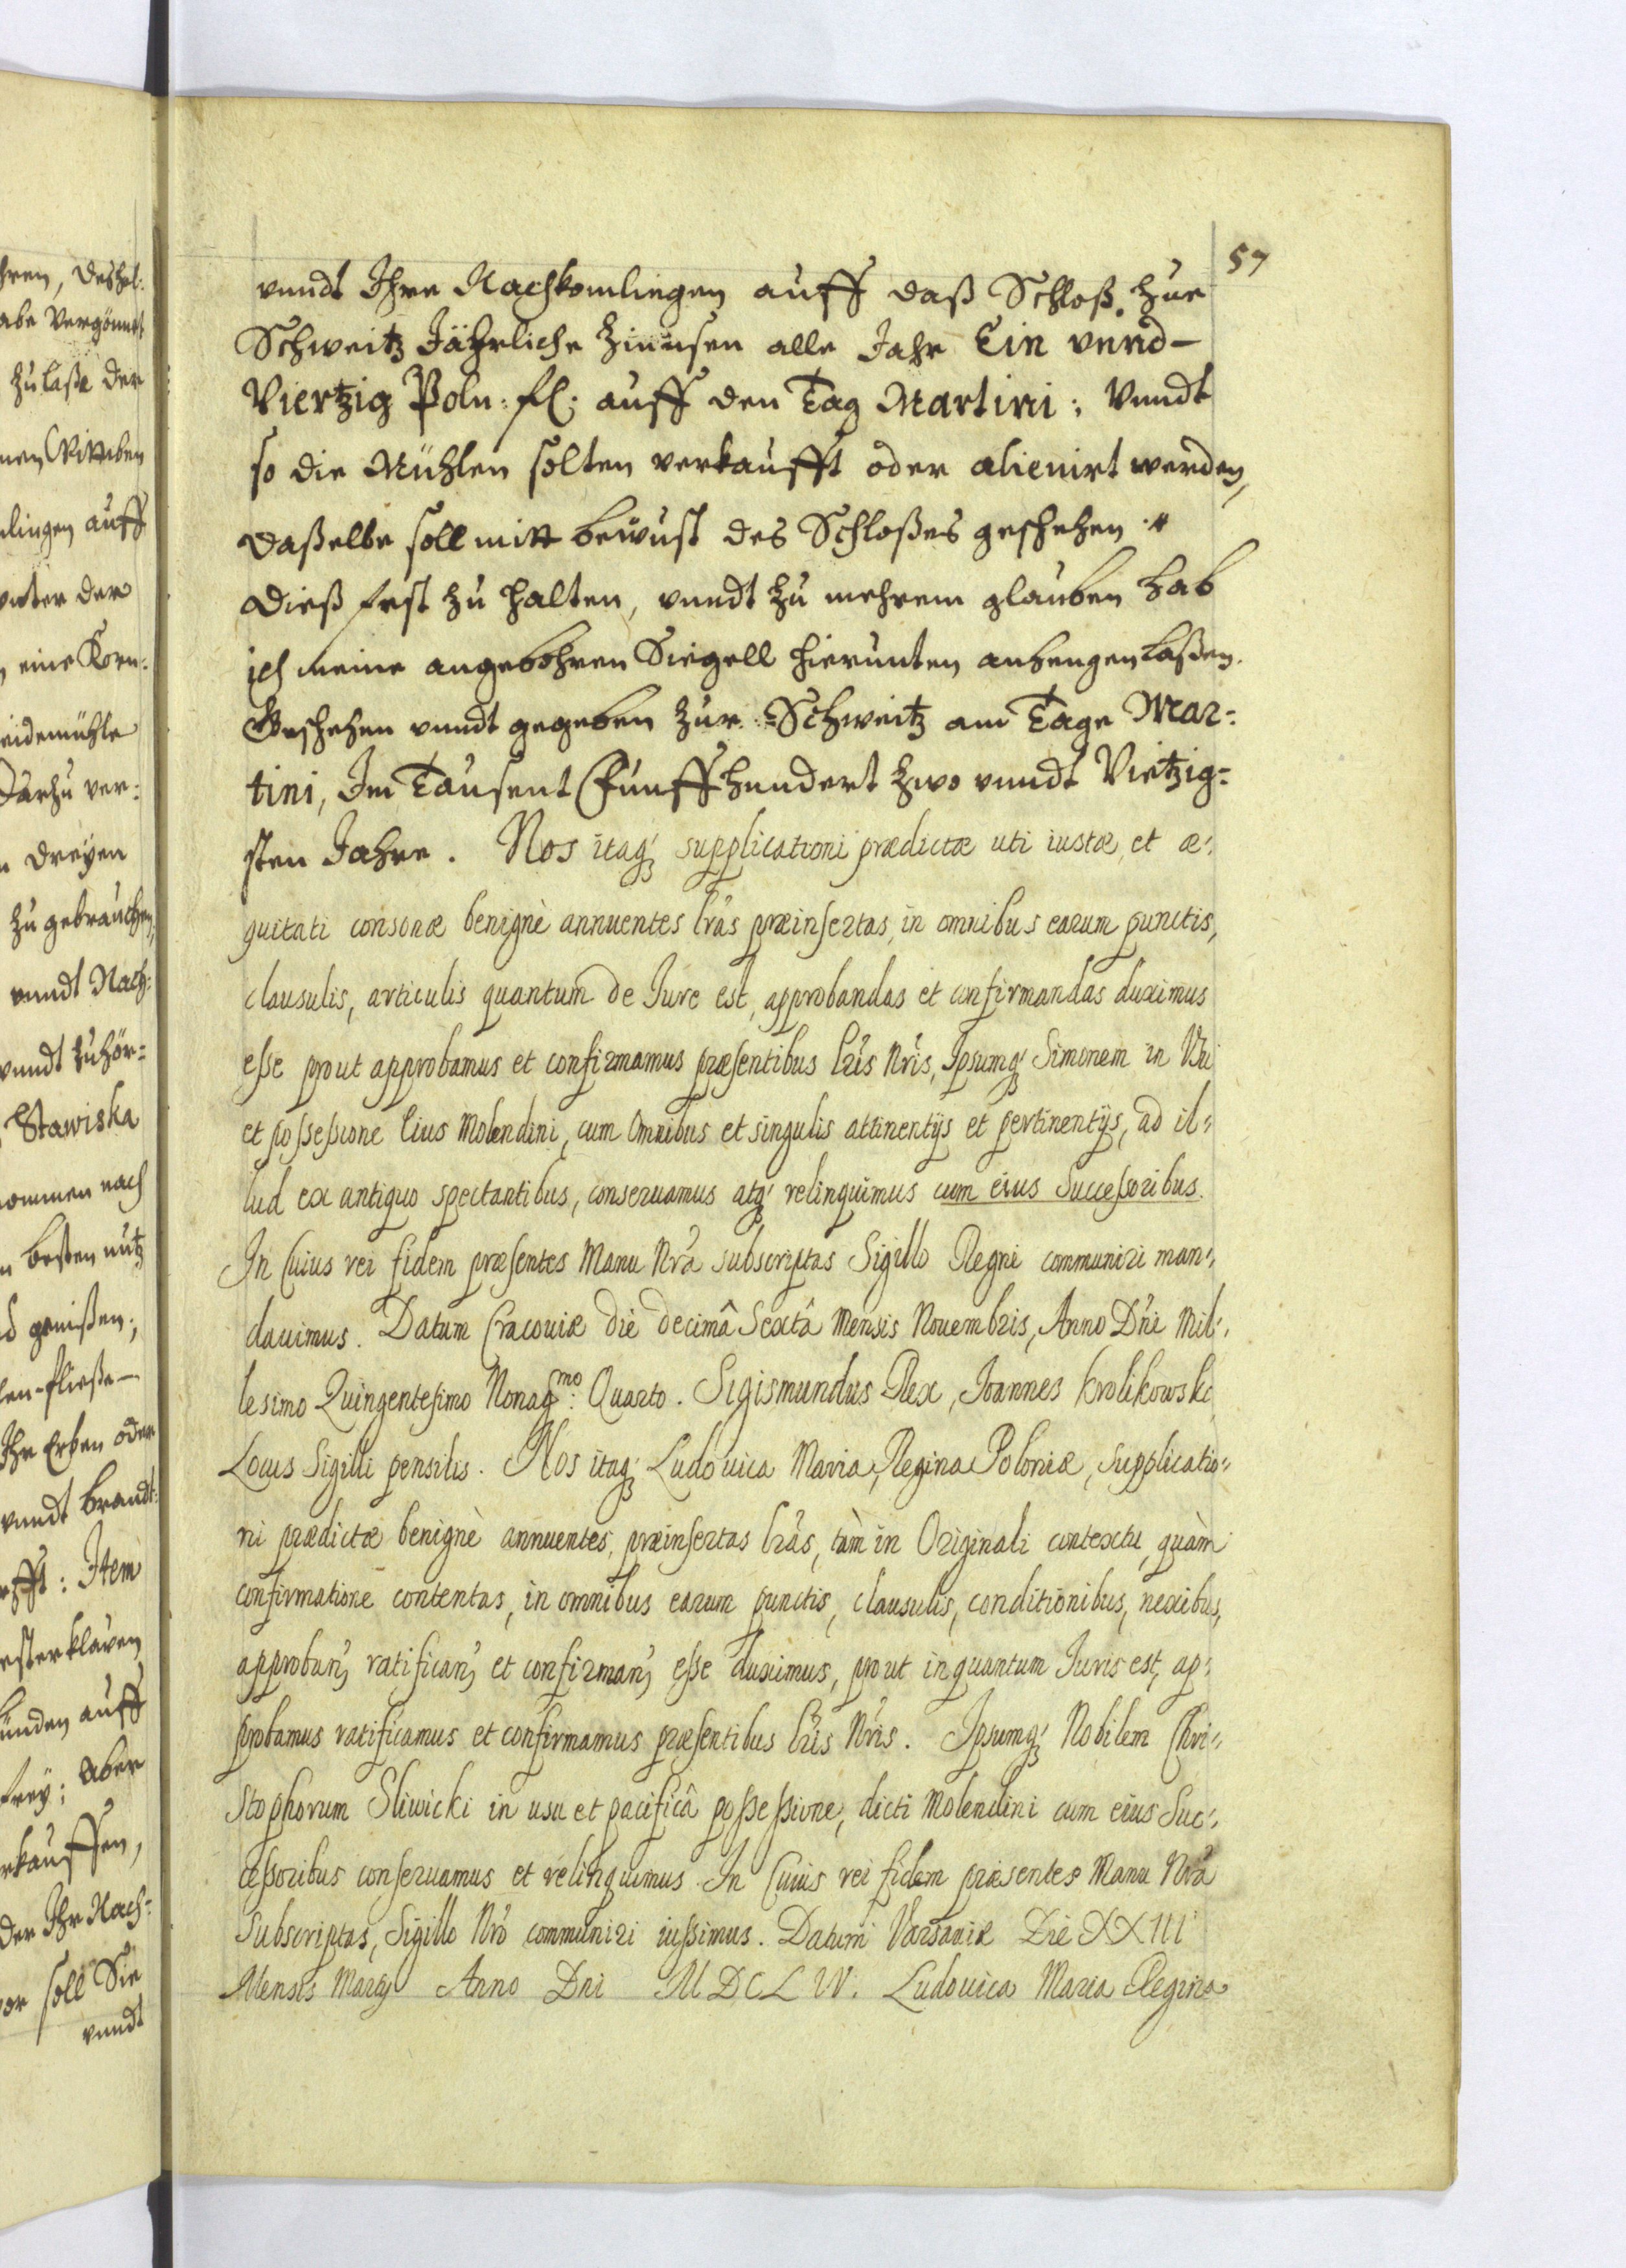 57
vnndt Ihre Nachkomlingen auff daß Schloß zur
Schweitz Jährliche Zinnsen alle Jahr Ein vnnd-
Viertzig Poln: fl: auff den Tag Martini; Vnndt
so die Mühlen solten verkaufft oder alienirt werden,
Daßelbe soll mitt bewust des Schloßes geschehen.
Dieß fest zu halten, vnndt zu mehrem glauben hab
ich meine angebohren Siegell hierunten anhengen laßen.
Geschehen vnndt gegeben zur Schweitz am Tage Mar-
tini, Im Tausent Fünffhundert zwo vnndt Vietzig-
sten Jahre. Nos itaq́ȝ supplicationi prædictæ uti iustæ, et æ-
quitati consonæ benignè annuentes lr̃as præinsertas, in omnibus earum punctis,
clausulis, articulis quantum de Jure est, approbandas et confirmandas duximus
esse prout approbamus et confirmamus præsentibus lr̃is Nr̃is, Ipsumq́ȝ Simonem in Usu
et possessione Eius Molendini, cum Omnibus et singulis attinentijs et pertinentijs, ad il-
lud ex antiquo spectantibus, conseruamus atq́ȝ relinquimus cum eius Successoribus.
In Cuius rei fidem præsentes Manu Nr̃a subscriptas Sigillo Regni communiri man-
dauimus. Datum Cracouiæ die decimâ Sextâ Mensis Nouembris, Anno Dñi Mil-
lesimo Quingentesimo Nonag:mo Quarto. Sigismundus Rex, Joannes Krolikowski
Locus Sigilli pensilis. Nos itaq́ȝ Ludouica Maria, Regina Poloniæ, Supplicatio-
ni prædictæ benignè annuentes, præinsertas lr̃as, tàm in Originali contextu, quàm
confirmatione contentas, in omnibus earum punctis, clausulis, conditionibus, nexibus,
approban̄ȝ ratifican̄ȝ et confirman̄ȝ esse duximus, prout in quantum Juris est, ap-
probamus ratificamus et confirmamus præsentibus lr̃is Nr̃is. Ipsumq́ȝ Nobilem Chri-
stophorum Sliwicki in usu et pacificâ possessione, dicti Molendini cum eius Suc-
cessoribus conseruamus et relinquimus. In Cuius rei fidem præsentes Manu Nr̃a
Subscriptas, Sigillo Nr̃o communiri iussimus. Datum Varsauiæ Die XXIII
Mensis Martij Anno Dni MDCLIV. Ludouica Maria Regina